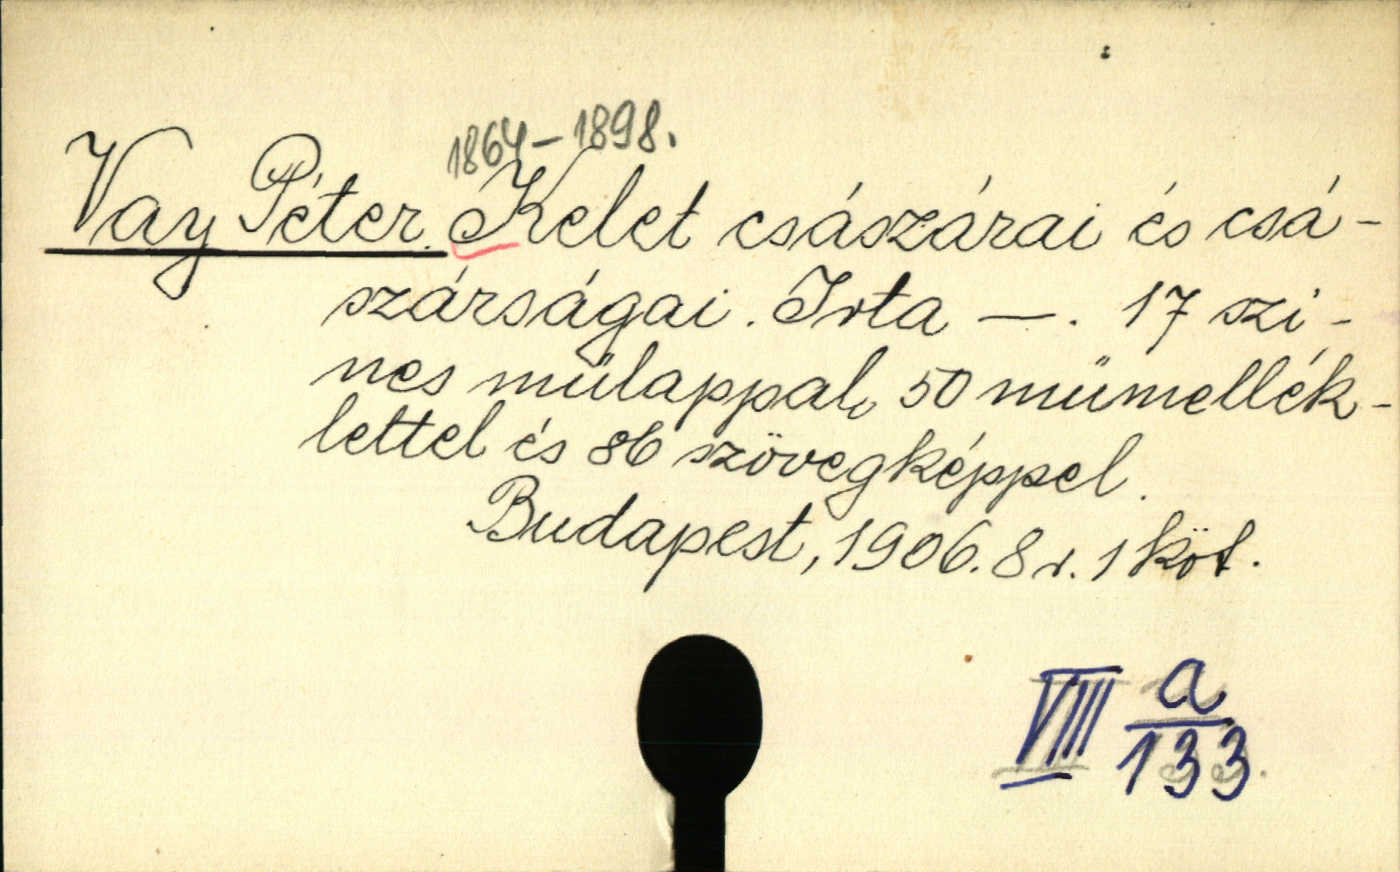 1864-1898.
Vay Péter. Kelet császárai és csá-
szárságai. Irta —. 17 szi-
nes műlappal, 50 műmellék-
lettel és 86 szövegképpel.
Budapest, 1906. 8 r. 1 köt.
VIII a
133